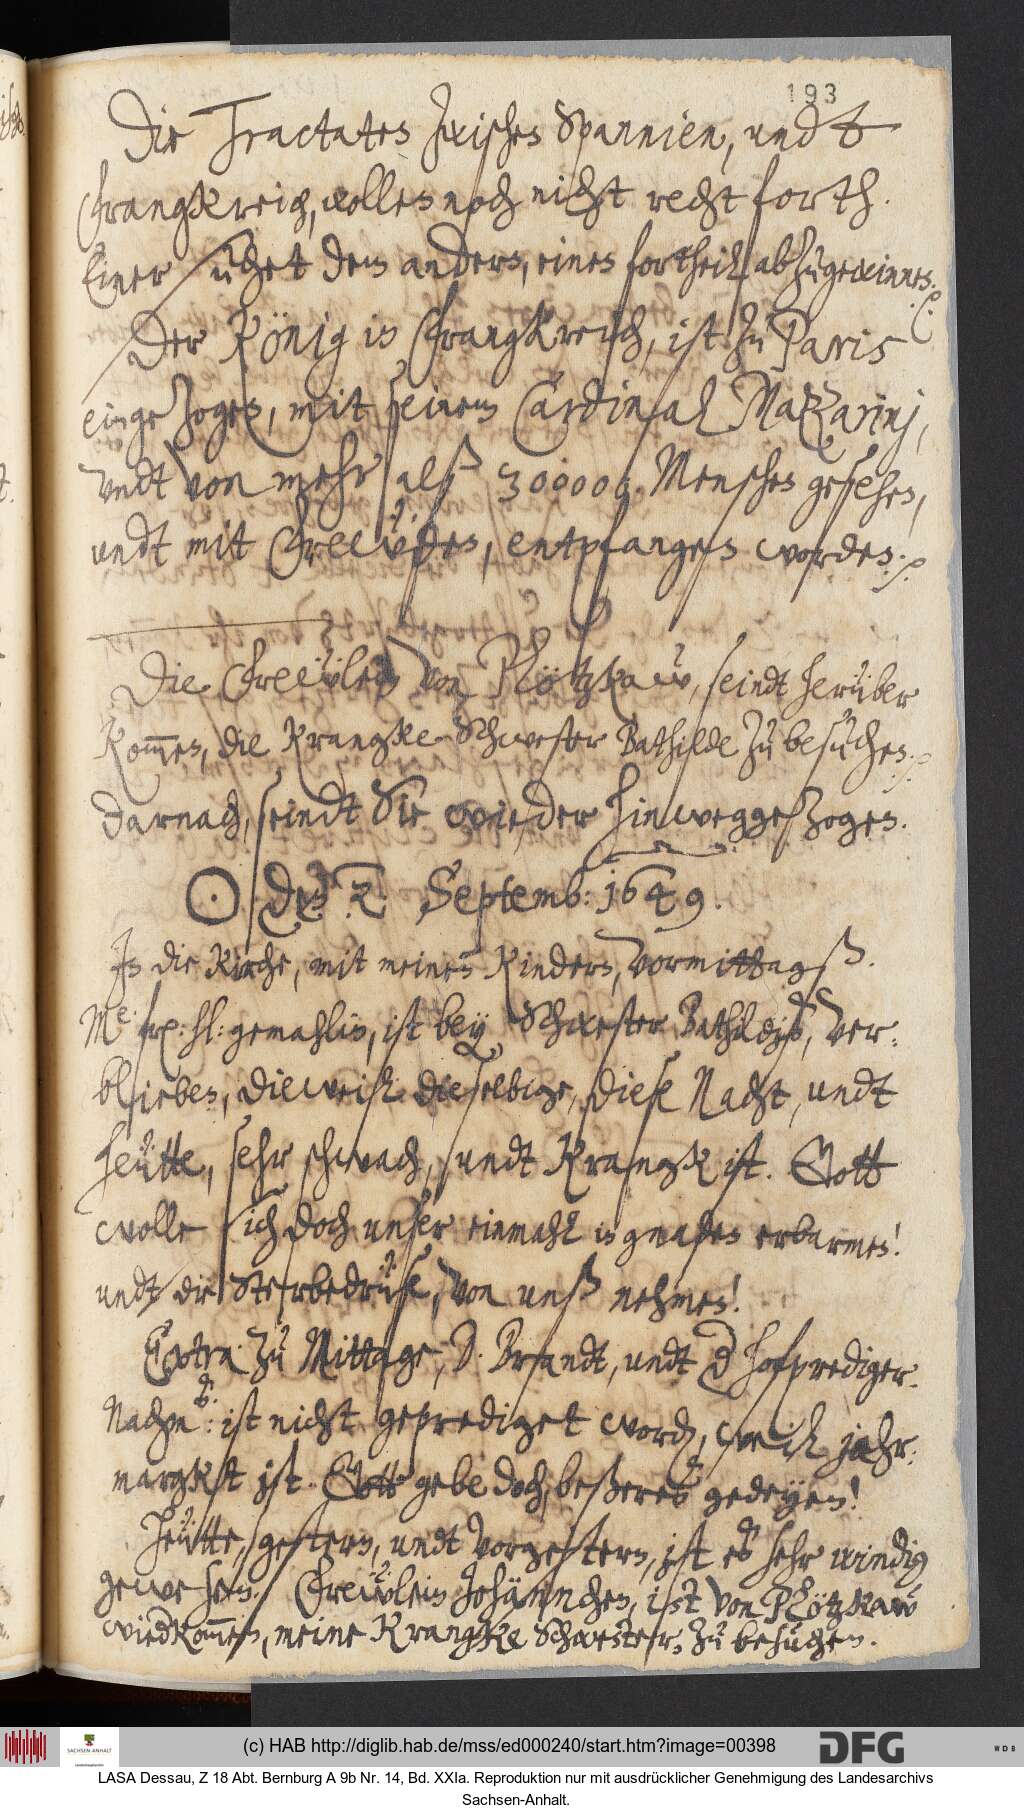 193
Die Tractaten zwischen Spannien, undt
Franckreich, wollen noch nicht recht forth.
Einer suchet dem andern, einen fortheil abzugewinnen.
Der König in Franckreich, ist zu Paris
eingezogen, mit seinem Cardinal Mazzarinj,
undt von mehr alß 300000 Menschen gesehen,
undt mit Freẅden, entpfangen worden.
Die Freẅlein von Plötzkaw, seindt herüber
kom̄en, die krancke Schwester Bathilde zu besuchen.
darnach, seindt Sie wieder hinweggezogen.
☉ den 2. Septemb: 1649.
In die Kirche, mit meinen Kindern, vormittagß.
Me: frx: hl: gemahlin, ist bey Schwester Bathildiß, ver-
blieben, dieweil dieselbige, diese Nacht, undt
heütte, sehr schwach, undt kranck ist. Gott
wolle sich doch unser einmahl in gnaden erbarmen!
undt die Sterbedrüse, von unß nehmen!
Extra zu Mittage, D. Brandt, undt d hofprediger.
Nachm: ist nicht geprediget word, weil jahr-
marckt ist. Gott gebe doch beßeres gedeyen!
Heütte, gestern, undt vorgestern, ist es sehr windig
gewesen. Freẅlein Johännchen, ist von Plötzkaw
wiedkom̄en, meine krancke Schwester, zu besuchen.
SACHSEN-ANHALT
(c) HAB http://diglib.hab.de/mss/ed000240/start.htm?image=00398
DFG
WDB
LASA Dessau, Z 18 Abt. Bernburg A 9b Nr. 14, Bd. XXIa. Reproduktion nur mit ausdrücklicher Genehmigung des Landesarchivs
Sachsen-Anhalt.